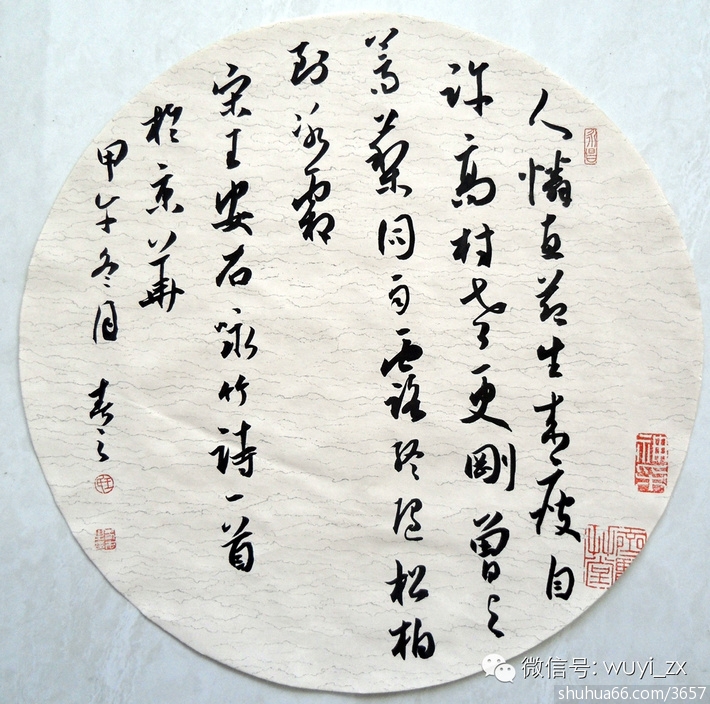 人憐直節生来瘦自
許高材老更剛曾与
蒿藜同雨露終随松柏
到冰霜
宋王安石咏竹詩一首
於京華
甲午冬月 春之
微信号: wuyi_zx
shuhua66.com/3657